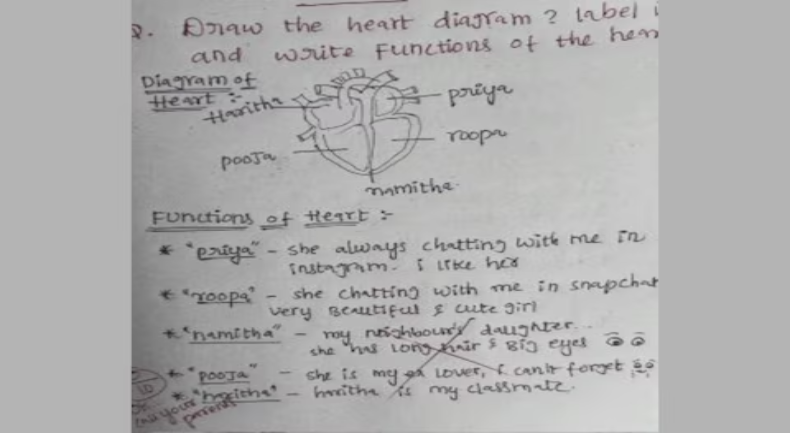 Q. Draw the heart diagram ? label
and write functions of the
Diagram of
Heart :-
Haritha
priya
roopa
pooja
namitha.
Functions of Heart :-
* "priya" - she always chatting with me in
instagram. i like her
* "roopa" - she chatting with me in snapchat
very Beautiful & cute girl
* "namitha" - my neighbour's daughter...
she has long hair & Big eyes
* "pooja" - she is my ex lover, i can't forget
* "haritha" - haritha is my classmate.
10
call your
parents